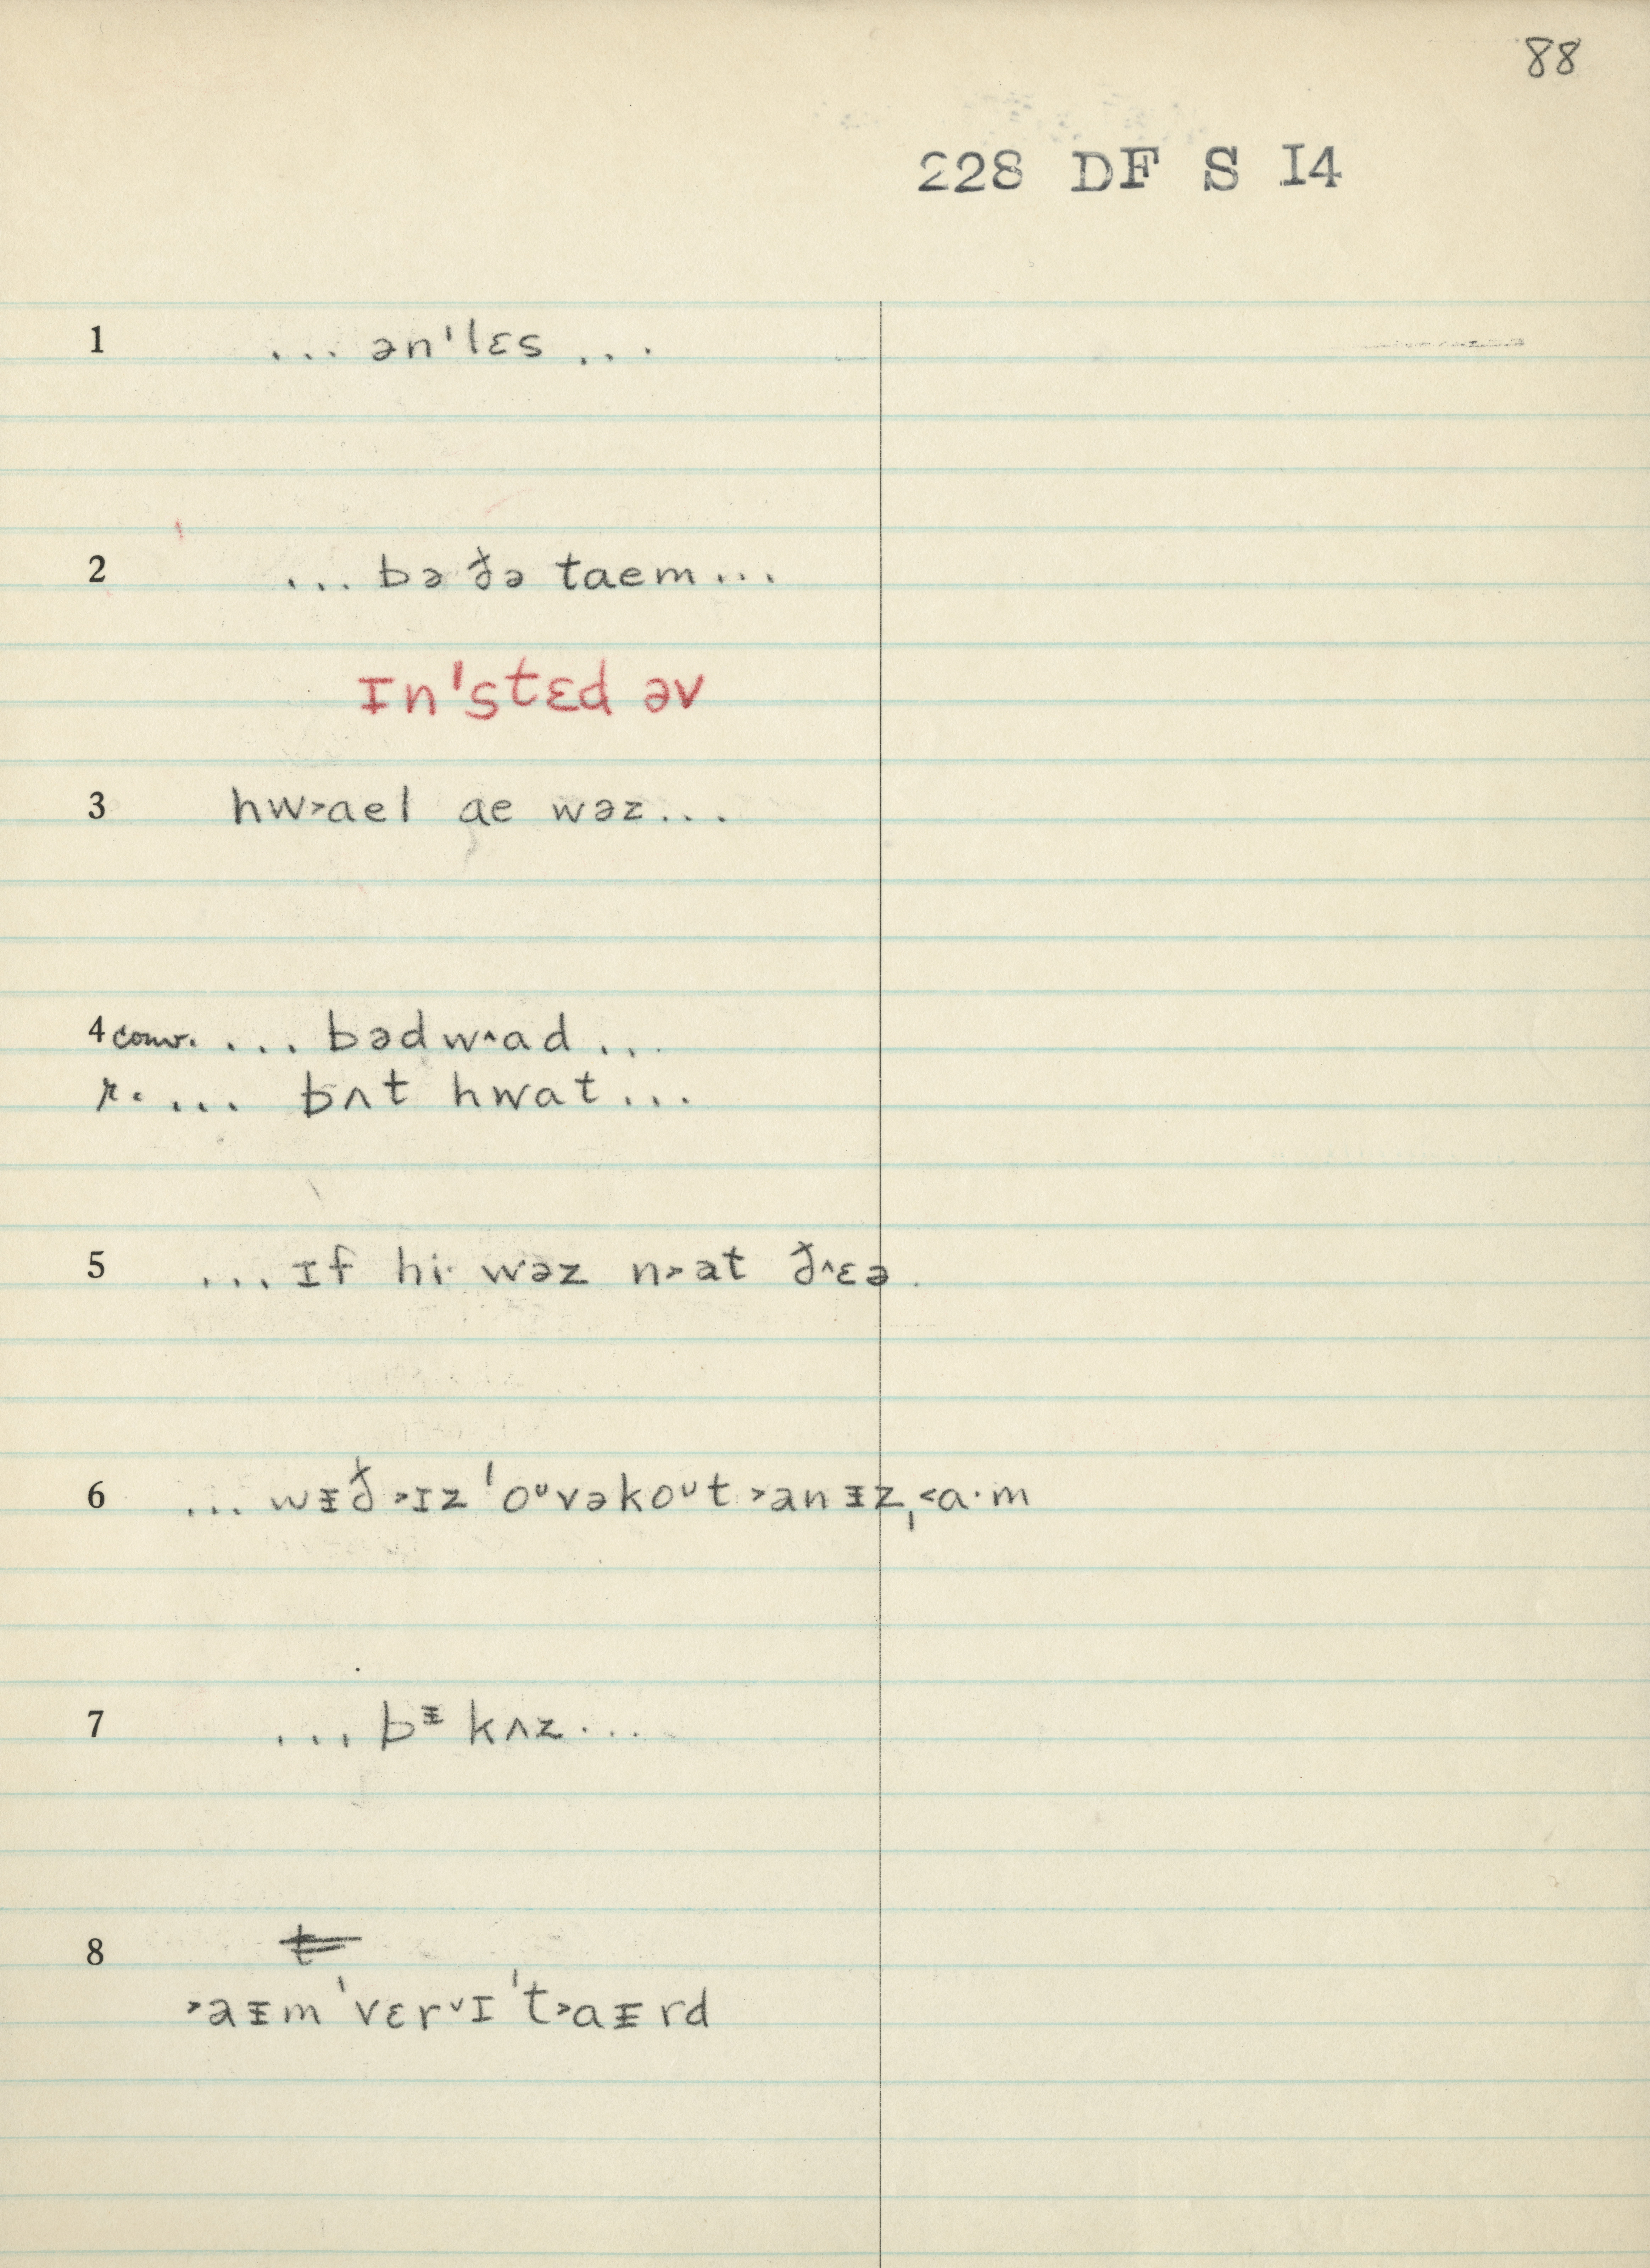 88
228 DF S I4
1 ... ən'lɛs ...
2 ... bə ðə taem ...
ɪn'stɛd əv
3 hw˃ael ae wəz ...
4 conv. .... bədw^ad ...
r. ... bʌt hwat ...
5 ... ɪf hi· wəz n˃at ð^ɛə.
6 ... wᵻð ˃ɪz 'oᶷvəkoᶷt ˃anᵻzˌ˂a·m
7 ... bᵻ kʌz ...
8 t
˃aᵻm 'vɛr˅ɪ 't˃aᵻrd